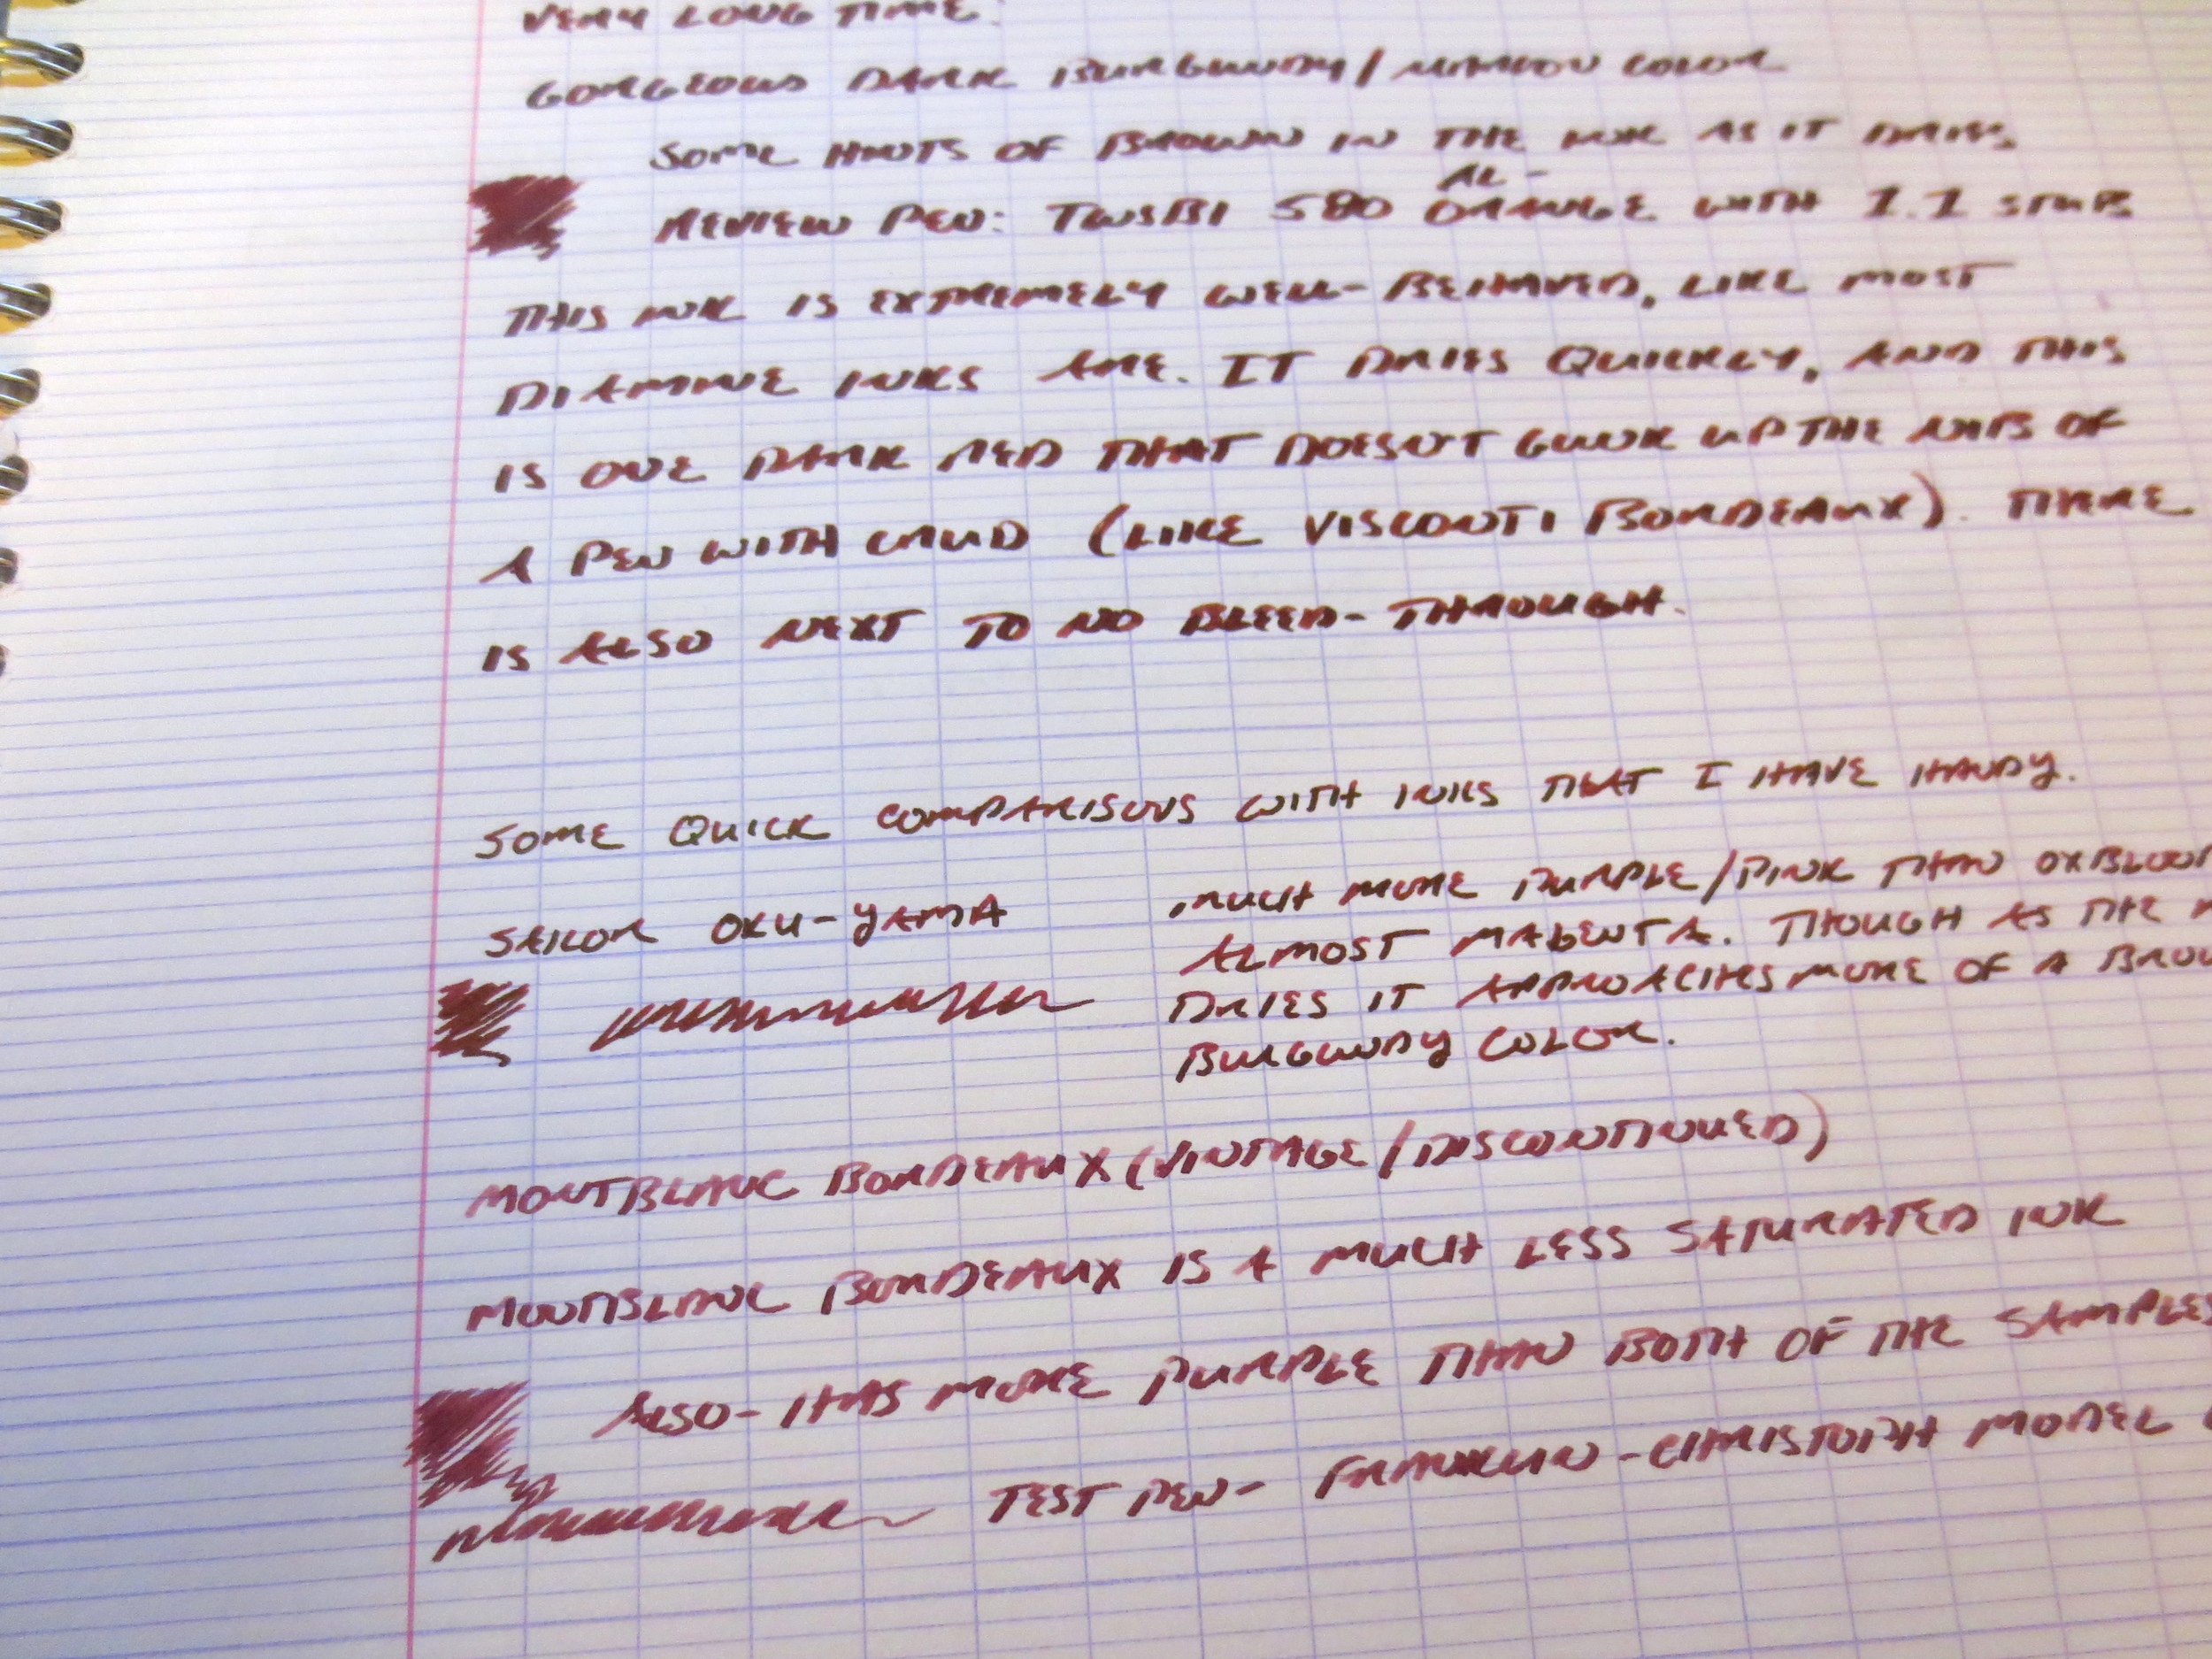 VERY LONG TIME.
GORGEOUS DARK BURGUNDY/MAROON COLOR
SOME HINTS OF BROWN IN THE INK AS IT DRIES.
AL-
REVIEW PEN: TWSBI 580 ORANGE WITH 1.1 STUB
THIS INK IS EXTREMELY WELL-BEHAVED, LIKE MOST
DIAMINE INKS ARE. IT DRIES QUICKLY, AND THIS
IS ONE DARK RED THAT DOESN'T GUNK UP THE NIBS OF
A PEN WITH CRUD (LIKE VISCONTI BORDEAUX). THERE
IS ALSO NEXT TO NO BLEED-THROUGH.
SOME QUICK COMPARISONS WITH INKS THAT I HAVE HANDY.
SAILOR OKU-YAMA
MUCH MORE PURPLE/PINK THAN OXBLOOD
ALMOST MAGENTA. THOUGH AS THE
DRIES IT APPROACHES MORE OF A BROW
BURGUNDY COLOR.
MONTBLANC BORDEAUX (VINTAGE/DISCONTINUED)
MONTBLANC BORDEAUX IS A MUCH LESS SATURATED INK
ALSO-HAS MORE PURPLE THAN BOTH OF THE SAMPLES
TEST PEN- FRANKLIN-CHRISTOPH MODEL